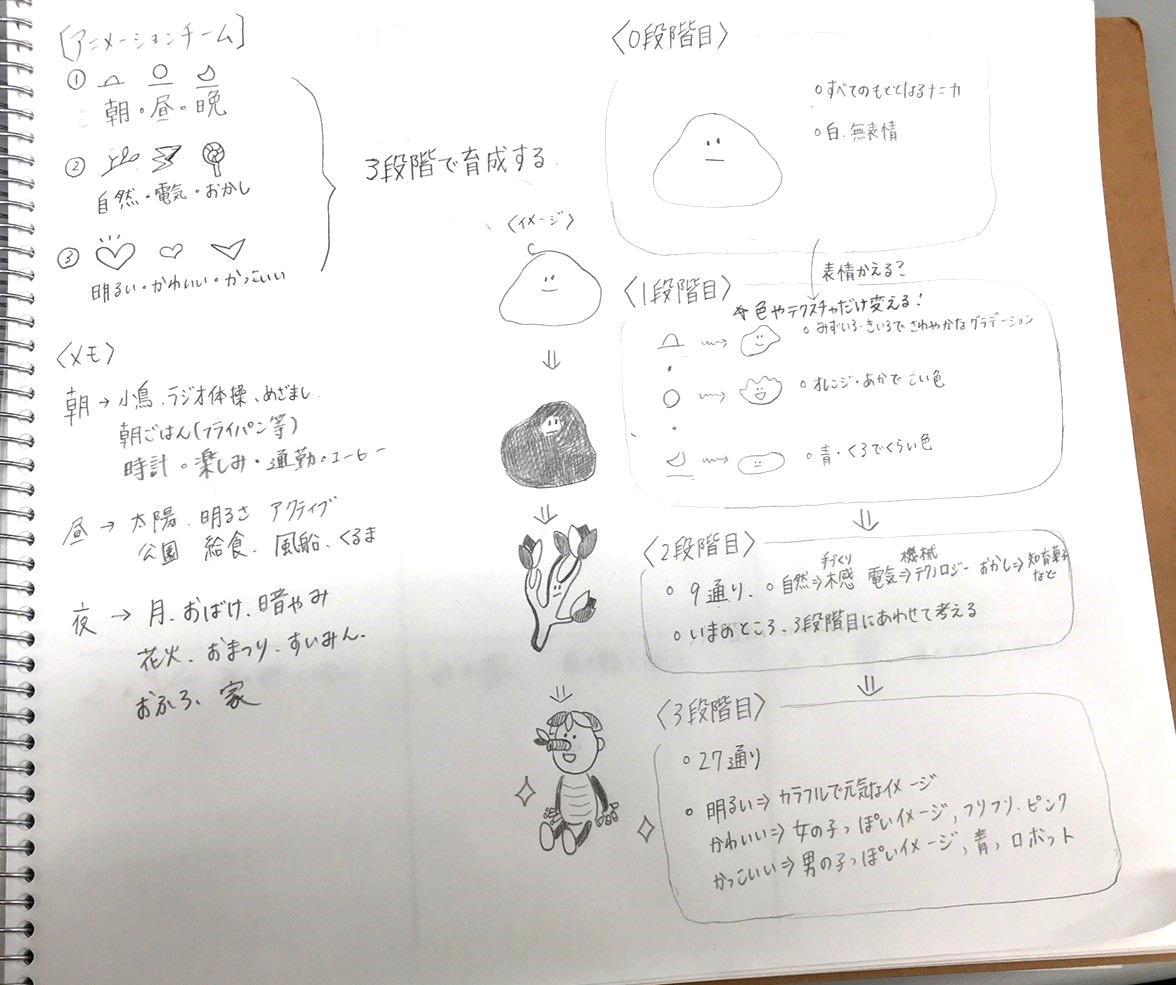 [アニメーションチーム]
①
朝・昼・晩
②
自然・電気・おかし
③
明るい・かわいい・かっこいい
3段階で育成する.
〈イメージ〉
〈メモ〉
朝→小鳥、ラジオ体操、めざまし
朝ごはん(フライパン等)
時計。楽しみ・通勤。コーヒー
昼→太陽、明るさ アクティブ
公園 給食、風船、くるま
夜→月、おばけ、暗やみ
花火、おまつり、すいみん、
おふろ、家
〈0段階目〉
○すべてのもととなるナニカ
○白、無表情
表情かえる?
〈1段階目〉
色やテクスチャだけ変える!
○みずいろ・きいろでさわやかなグラデーション
○オレンジ・あかでこい色
○青・くろでくらい色
〈2段階目〉
手づくり 機械
○9通り、○自然⇒木感 電気⇒テクノロジー おかし⇒知育菓子など
○いまのところ、3段階目にあわせて考える
〈3段階目〉
○27通り
○明るい⇒カラフルで元気なイメージ
かわいい⇒女の子っぽいイメージ、フリフリ、ピンク
かっこいい⇒男の子っぽいイメージ、青、ロボット